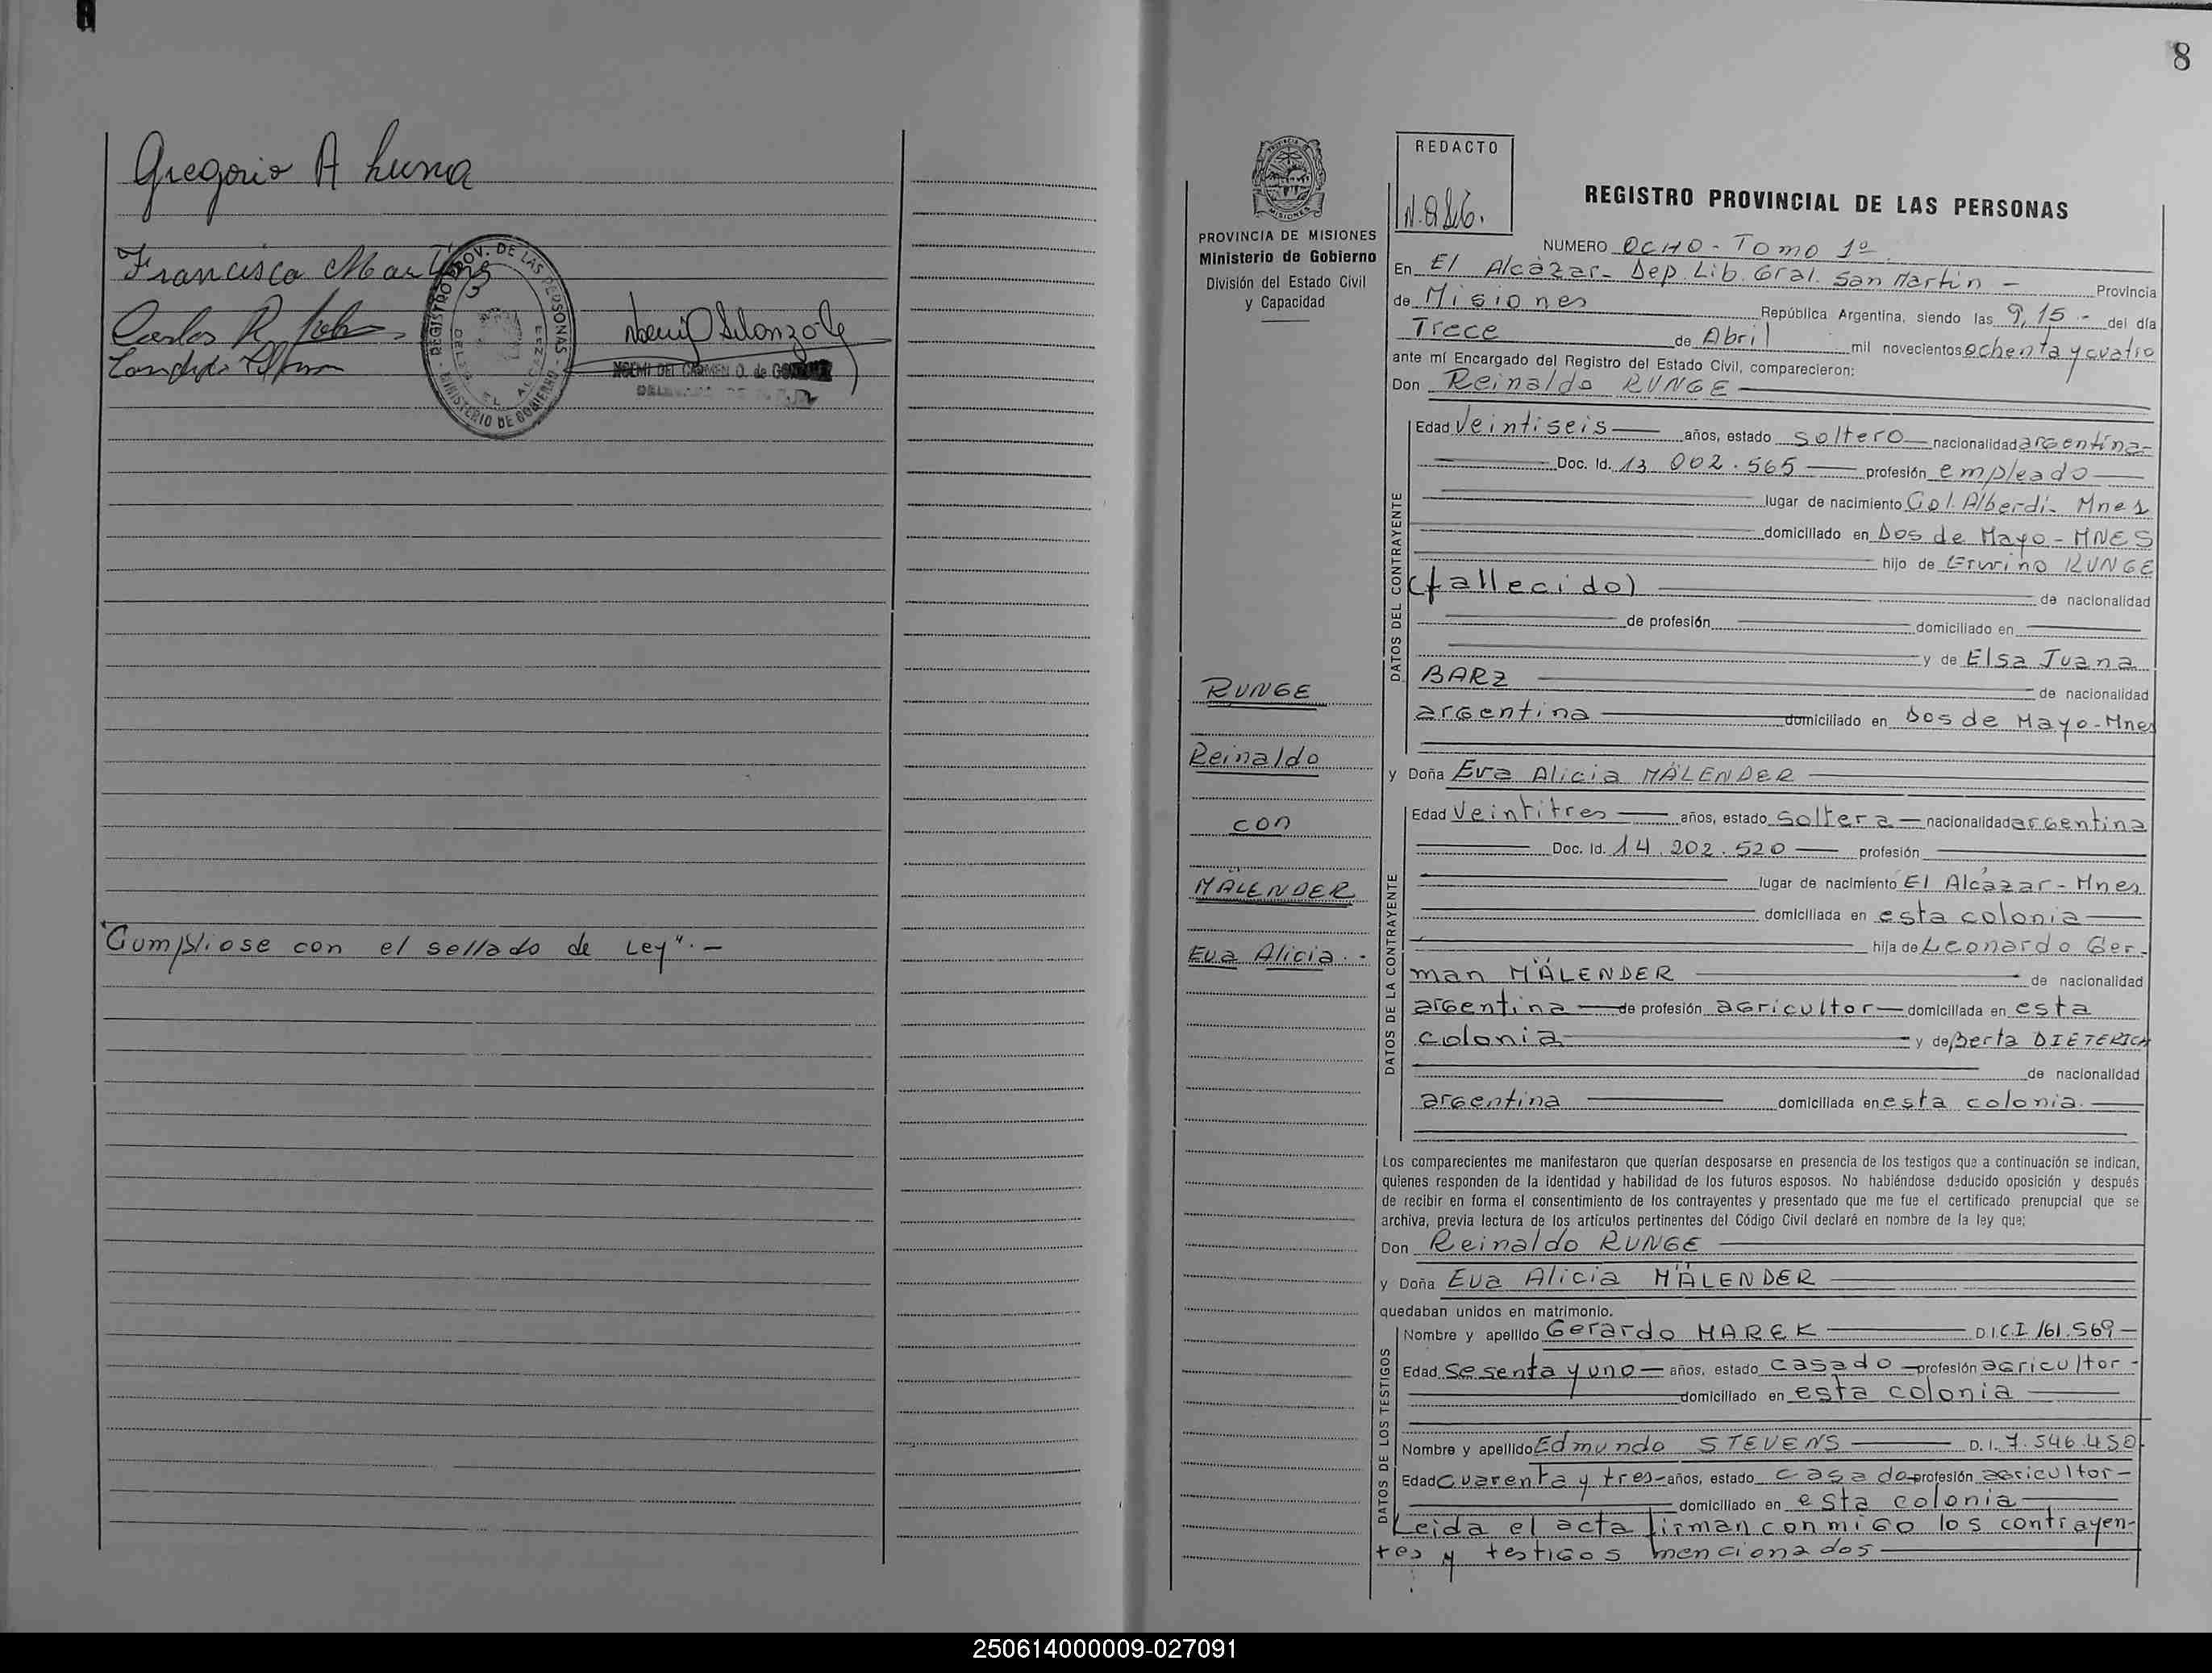 Gregorio A Luna
Francisca Martins
Carlos R
REGISTRO PROV. DE LAS PERSONAS
MINISTERIO DE GOBIERNO
EL ALCAZAR
NOEMI DEL CARMEN O. de
"Cumpliose con el sellado de Ley". -
8
PROVINCIA DE MISIONES
Ministerio de Gobierno
División del Estado Civil
y Capacidad
RUNGE
Reinaldo
con
MÄLENDER
Eva Alicia. -
REDACTO
REGISTRO PROVINCIAL DE LAS PERSONAS
NUMERO OCHO - Tomo 1º
En El Alcázar - Dep. Lib. Gral. San Martín - Provincia
de Misiones República Argentina, siendo las 9,15 - del día
Trece de Abril mil novecientos ochenta y cuatro
ante mí Encargado del Registro del Estado Civil, comparecieron:
Don Reinaldo RUNGE
DATOS DEL CONTRAYENTE
Edad Veintiseis años, estado soltero nacionalidad argentina-
Doc. Id. 13.002.565 profesión empleado
lugar de nacimiento Col. Alberdi - Mnes
domiciliado en Dos de Mayo - MNES
hijo de Erwino RUNGE
(fallecido) de nacionalidad
de profesión domiciliado en
y de Elsa Juana
BARZ de nacionalidad
argentina domiciliado en Dos de Mayo - Mnes
y Doña Eva Alicia MÄLENDER
DATOS DE LA CONTRAYENTE
Edad Veintitres años, estado soltera nacionalidad argentina
Doc. Id. 14.202.520 profesión
lugar de nacimiento El Alcázar - Mnes
domiciliada en esta colonia
hija de Leonardo Ger-
man MÄLENDER de nacionalidad
argentina de profesión agricultor domiciliada en esta
colonia y de Berta DIETERICH
de nacionalidad
argentina domiciliada en esta colonia.
Los comparecientes me manifestaron que querían desposarse en presencia de los testigos que a continuación se indican,
quienes responden de la identidad y habilidad de los futuros esposos. No habiéndose deducido oposición y después
de recibir en forma el consentimiento de los contrayentes y presentado que me fue el certificado prenupcial que se
archiva, previa lectura de los artículos pertinentes del Código Civil declaré en nombre de la ley que:
Don Reinaldo RUNGE
y Doña Eva Alicia MÄLENDER
quedaban unidos en matrimonio.
DATOS DE LOS TESTIGOS
Nombre y apellido Gerardo MAREK D.I.C.I 161.569
Edad Sesenta y uno años, estado casado profesión agricultor -
domiciliado en esta colonia
Nombre y apellido Edmundo STEVENS D.I. 7.546.450
Edad Cuarenta y tres años, estado casado profesión agricultor -
domiciliado en esta colonia
Leida el acta firman conmigo los contrayen-
tes y testigos mencionados
250614000009-027091